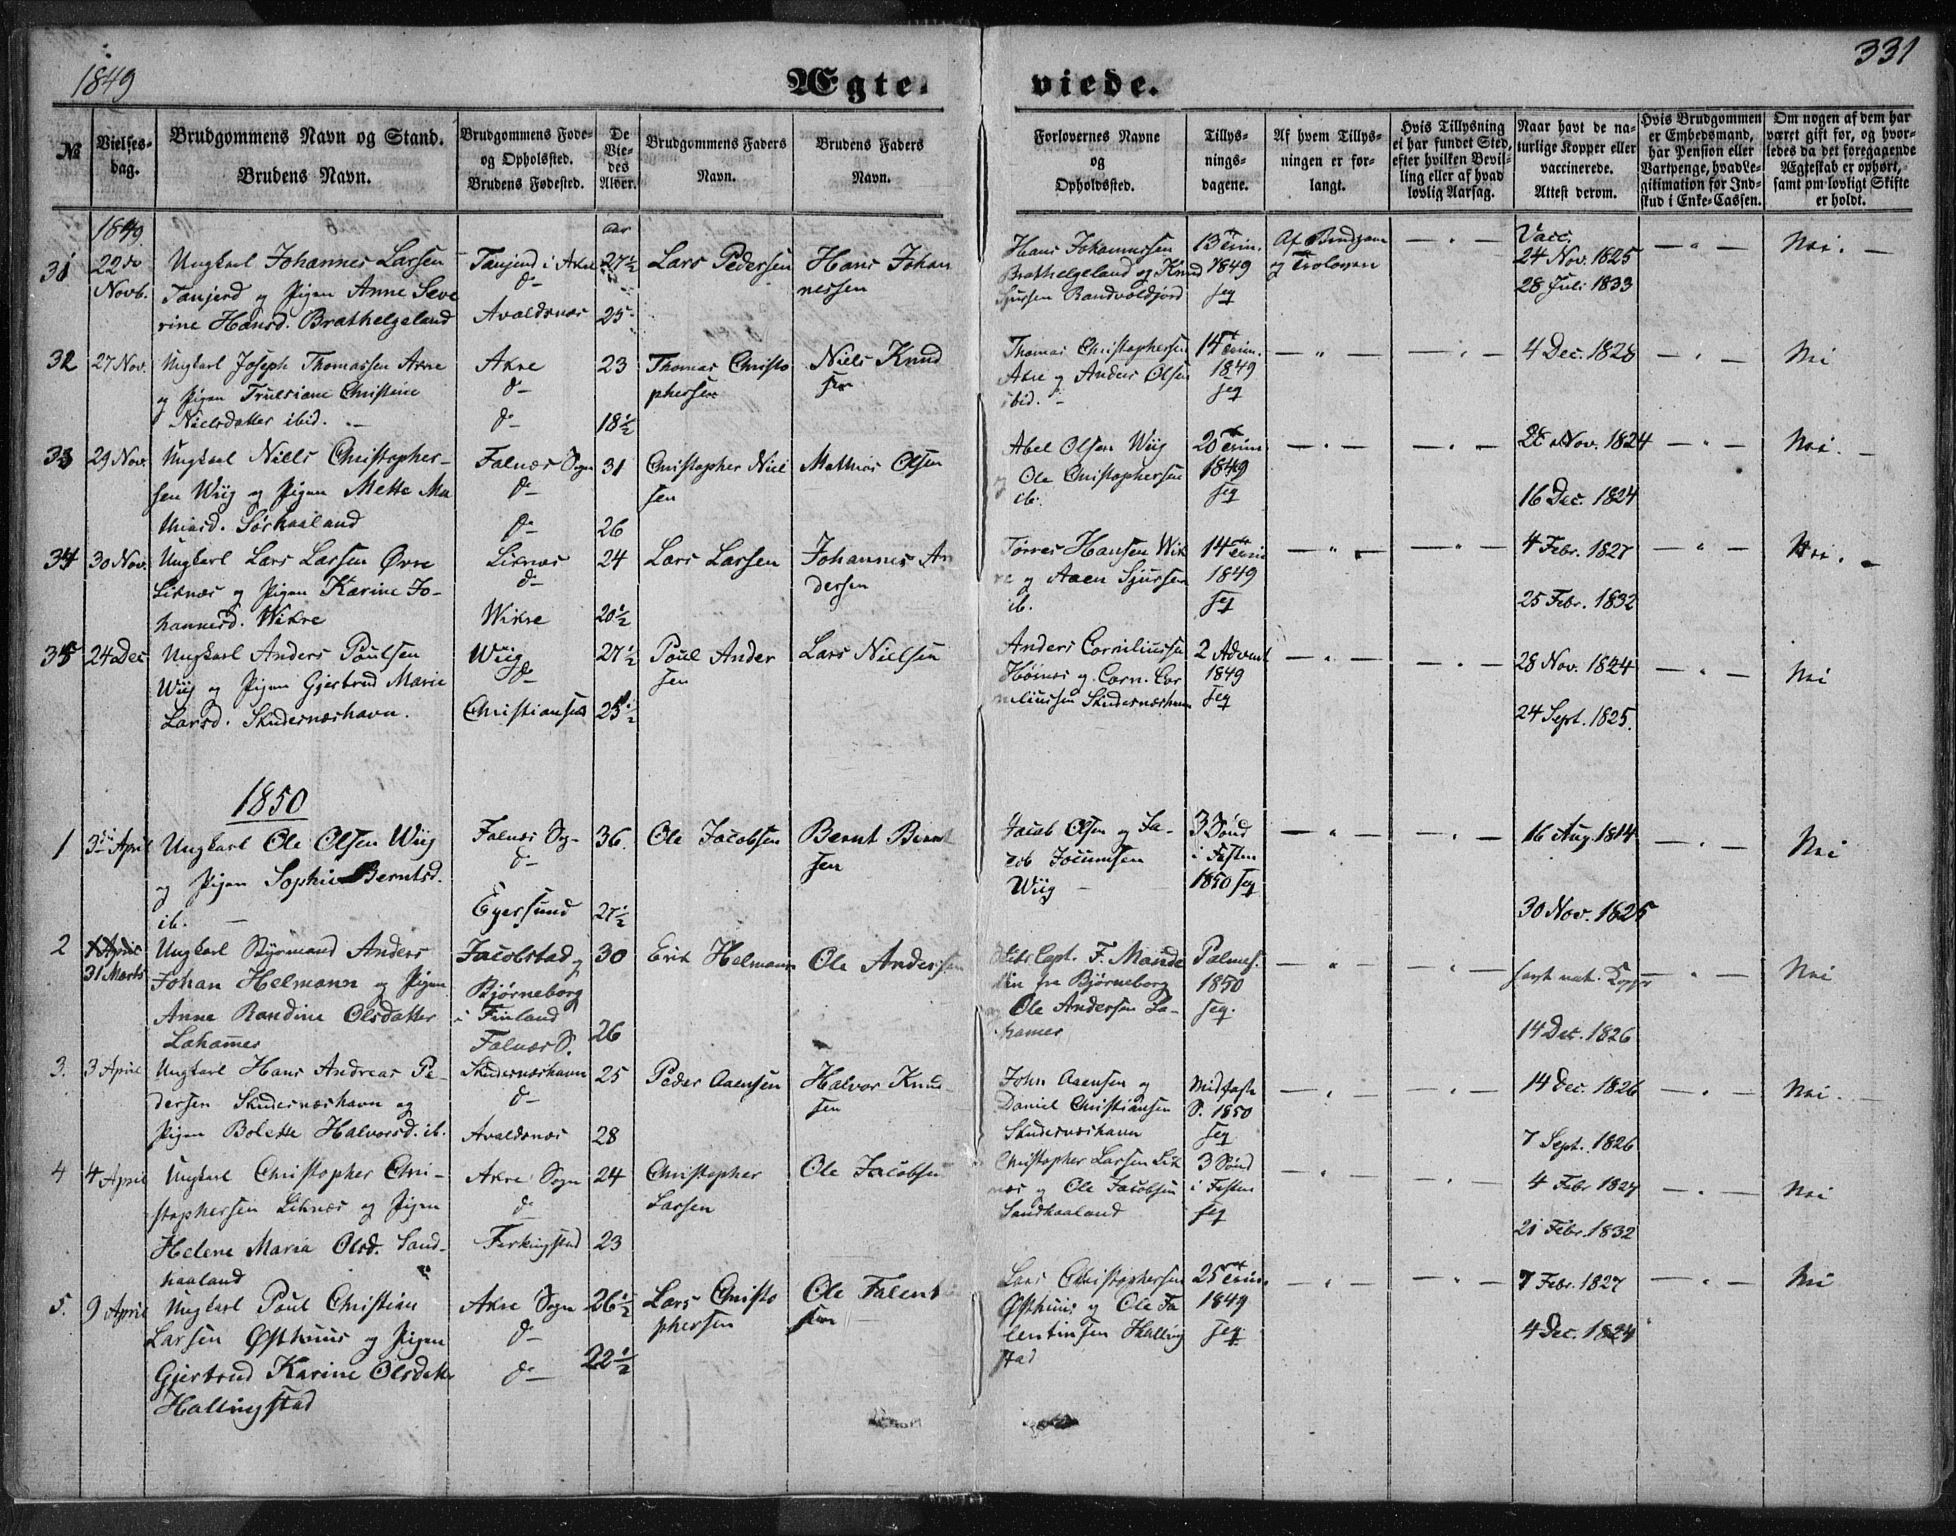 1849
331
Ægte-
viede.
№
Vielses-
dag.
Brudgommens Navn og Stand.
Brudens Navn.
Brudgommens Føde-
og Opholdssted.
Brudens Fødested.
De
Vie-
des
Alder.
Brudgommens Faders
Navn.
Brudens Faders
Navn.
Forlovernes Navne
og
Opholdssted.
Tillys-
nings-
dagene.
Af hvem Tillys-
ningen er for-
langt.
Hvis Tillysning
ei har fundet Sted,
efter hvilken Bevil-
ling eller af hvad
lovlig Aarsag.
Naar havt de na-
turlige Kopper eller
vaccinerede.
Attest derom.
Hvis Brudgommen
er Embedsmand,
har Pension eller
Vartpenge, hvad Le-
gitimation for Ind-
skud i Enke-Cassen.
Om nogen af dem har
været gift før, og hvor-
ledes da det foregaaende
Ægteskab er ophørt,
samt om lovligt Skifte
er holdt.
1849.
31
22de
Novb.
Ungkarl Johannes Larsen
Tanjerd og Pigen Anne Seve
rine Hansd. Brathelgeland
Tanjerd i Akre
do
Avaldsnæs
27½
25
Lars Pedersen
Hans Johan
nessen
Hans Johannessen
Brathelgeland og Knud
13 Trin.
1849
seq
Af Brudgom
og Forlover
Vacc.
24 Nov. 1825
28 Juli 1833
Nei
32
27 Nov.
Ungkarl Joseph Thomassen Akre
og Pigen Trulsiane Christine
Nielsdatter ibid.
Akre
do
do
23
18½
Thomas Christo
phersen
Niels Knud
sen
Thomas Christophersen
Akre og Anders Olsen
ibid.
14 Trin.
1849
seq
4 Dec. 1828
Nei
33
29 Nov.
Ungkarl Niels Christopher-
sen Wiig og Pigen Mette Ma
thiasd. Sørhaaland
Falnæs Sogn
do
do
31
26
Christopher Niel
sen
Mathias Olsen
Abel Olsen Wiig
og Ole Christophersen
ib.
20 Trin.
1849
seq
Nov. 1824
16 Dec. 1824
Nei.
34
30 Nov.
Ungkarl Lars Larsen Øvre
Liknæs og Pigen Karine Jo-
hannesd. Wikre
Liknæs
do
Wikre
24
20½
Lars Larsen
Johannes An
dersen
Tørres Hansen Wik
re og Aaen Sjursen
ib.
14 Trin
1849
seq
4 Febr. 1827
25 Febr. 1832
Nei.
35
24 Dec
Ungkarl Anders Poulsen
Wiig og Pigen Gjertrud Marie
Larsd. Skudernæshavn.
Wiig
do
Christiansand
27½
25½
Poul Ander
sen
Lars Nielsen
Anders Corneliussen
og Corn. Cor
neliussen Skudernæshavn
2 Advent
1849
seq
28 Nov. 1824
24 Sept. 1825.
Nei
1850
1
3 April
Ungkarl Ole Olsen Wiig
og Pigen Sophie Berntsd.
ib.
Falnæs Sog-
do
Egersund
36.
27½
Ole Jacobsen
Bernt Bernt
sen
Jacob Olsen og Ja-
cob Jocumsen
Wiig
3 Sønd
i Fasten
1850 seq
16 Aug. 1814
30 Nov. 1825
Nei
2
1 April
31 Marts
Ungkarl Styrmand Anders
Johan Helmann og Pigen
Anne Randine Olsdatter
Lahamer
Jacobstad og
Bjørneborg
i Finland
Falnæs S.
30
26
Erik Helmann
Ole Andersen
Skibs Capt. F. Mande
lin fra Bjørneborg
og Ole Andersen La-
hamer
Palmes.
1850
seq.
havt nat. Kopper
14 Dec. 1826
Nei
3.
3 April
Ungkarl Hans Andreas Pe-
dersen Skudernæshavn og
Pigen Bolette Halvorsd. ib.
Skudernæshavn
do
Avaldsnæs
25
28
Peder Aaensen
Halvor Knud
sen
John Aaensen og
Daniel Christiansen
Skudernæshavn
Midfaste
S. 1850
seq
14 Dec. 1826
7 Sept. 1826
Nei.
4
4 April
Ungkarl Christopher Chri-
stophersen Liknæs og Pigen
Helene Maria Olsd. Sand-
haaland
Akre Sogn
do
Ferkingstad
24
23
Christopher
Larsen
Ole Jacobsen
Christopher Larsen Lik
næs og Ole Jacobsen
Sandhaaland
3 Sønd
i Fasten
seq
4 Febr 1827
21 Febr. 1832
Nei
5.
9 April
Ungkarl Poul Christian
Larsen Østhuus og Pigen
Gjertrud Karine Olsdatter
Hallingstad
Akre Sogn
do
do
26½
22½
Lars Christo
phersen
Ole Falent
Lars Christophersen
Østhuus og Ole Fa
lentinsen Halling
stad
25 Trin.
1849
seq
7 Febr. 1827
4 Dec. 1824
Nei